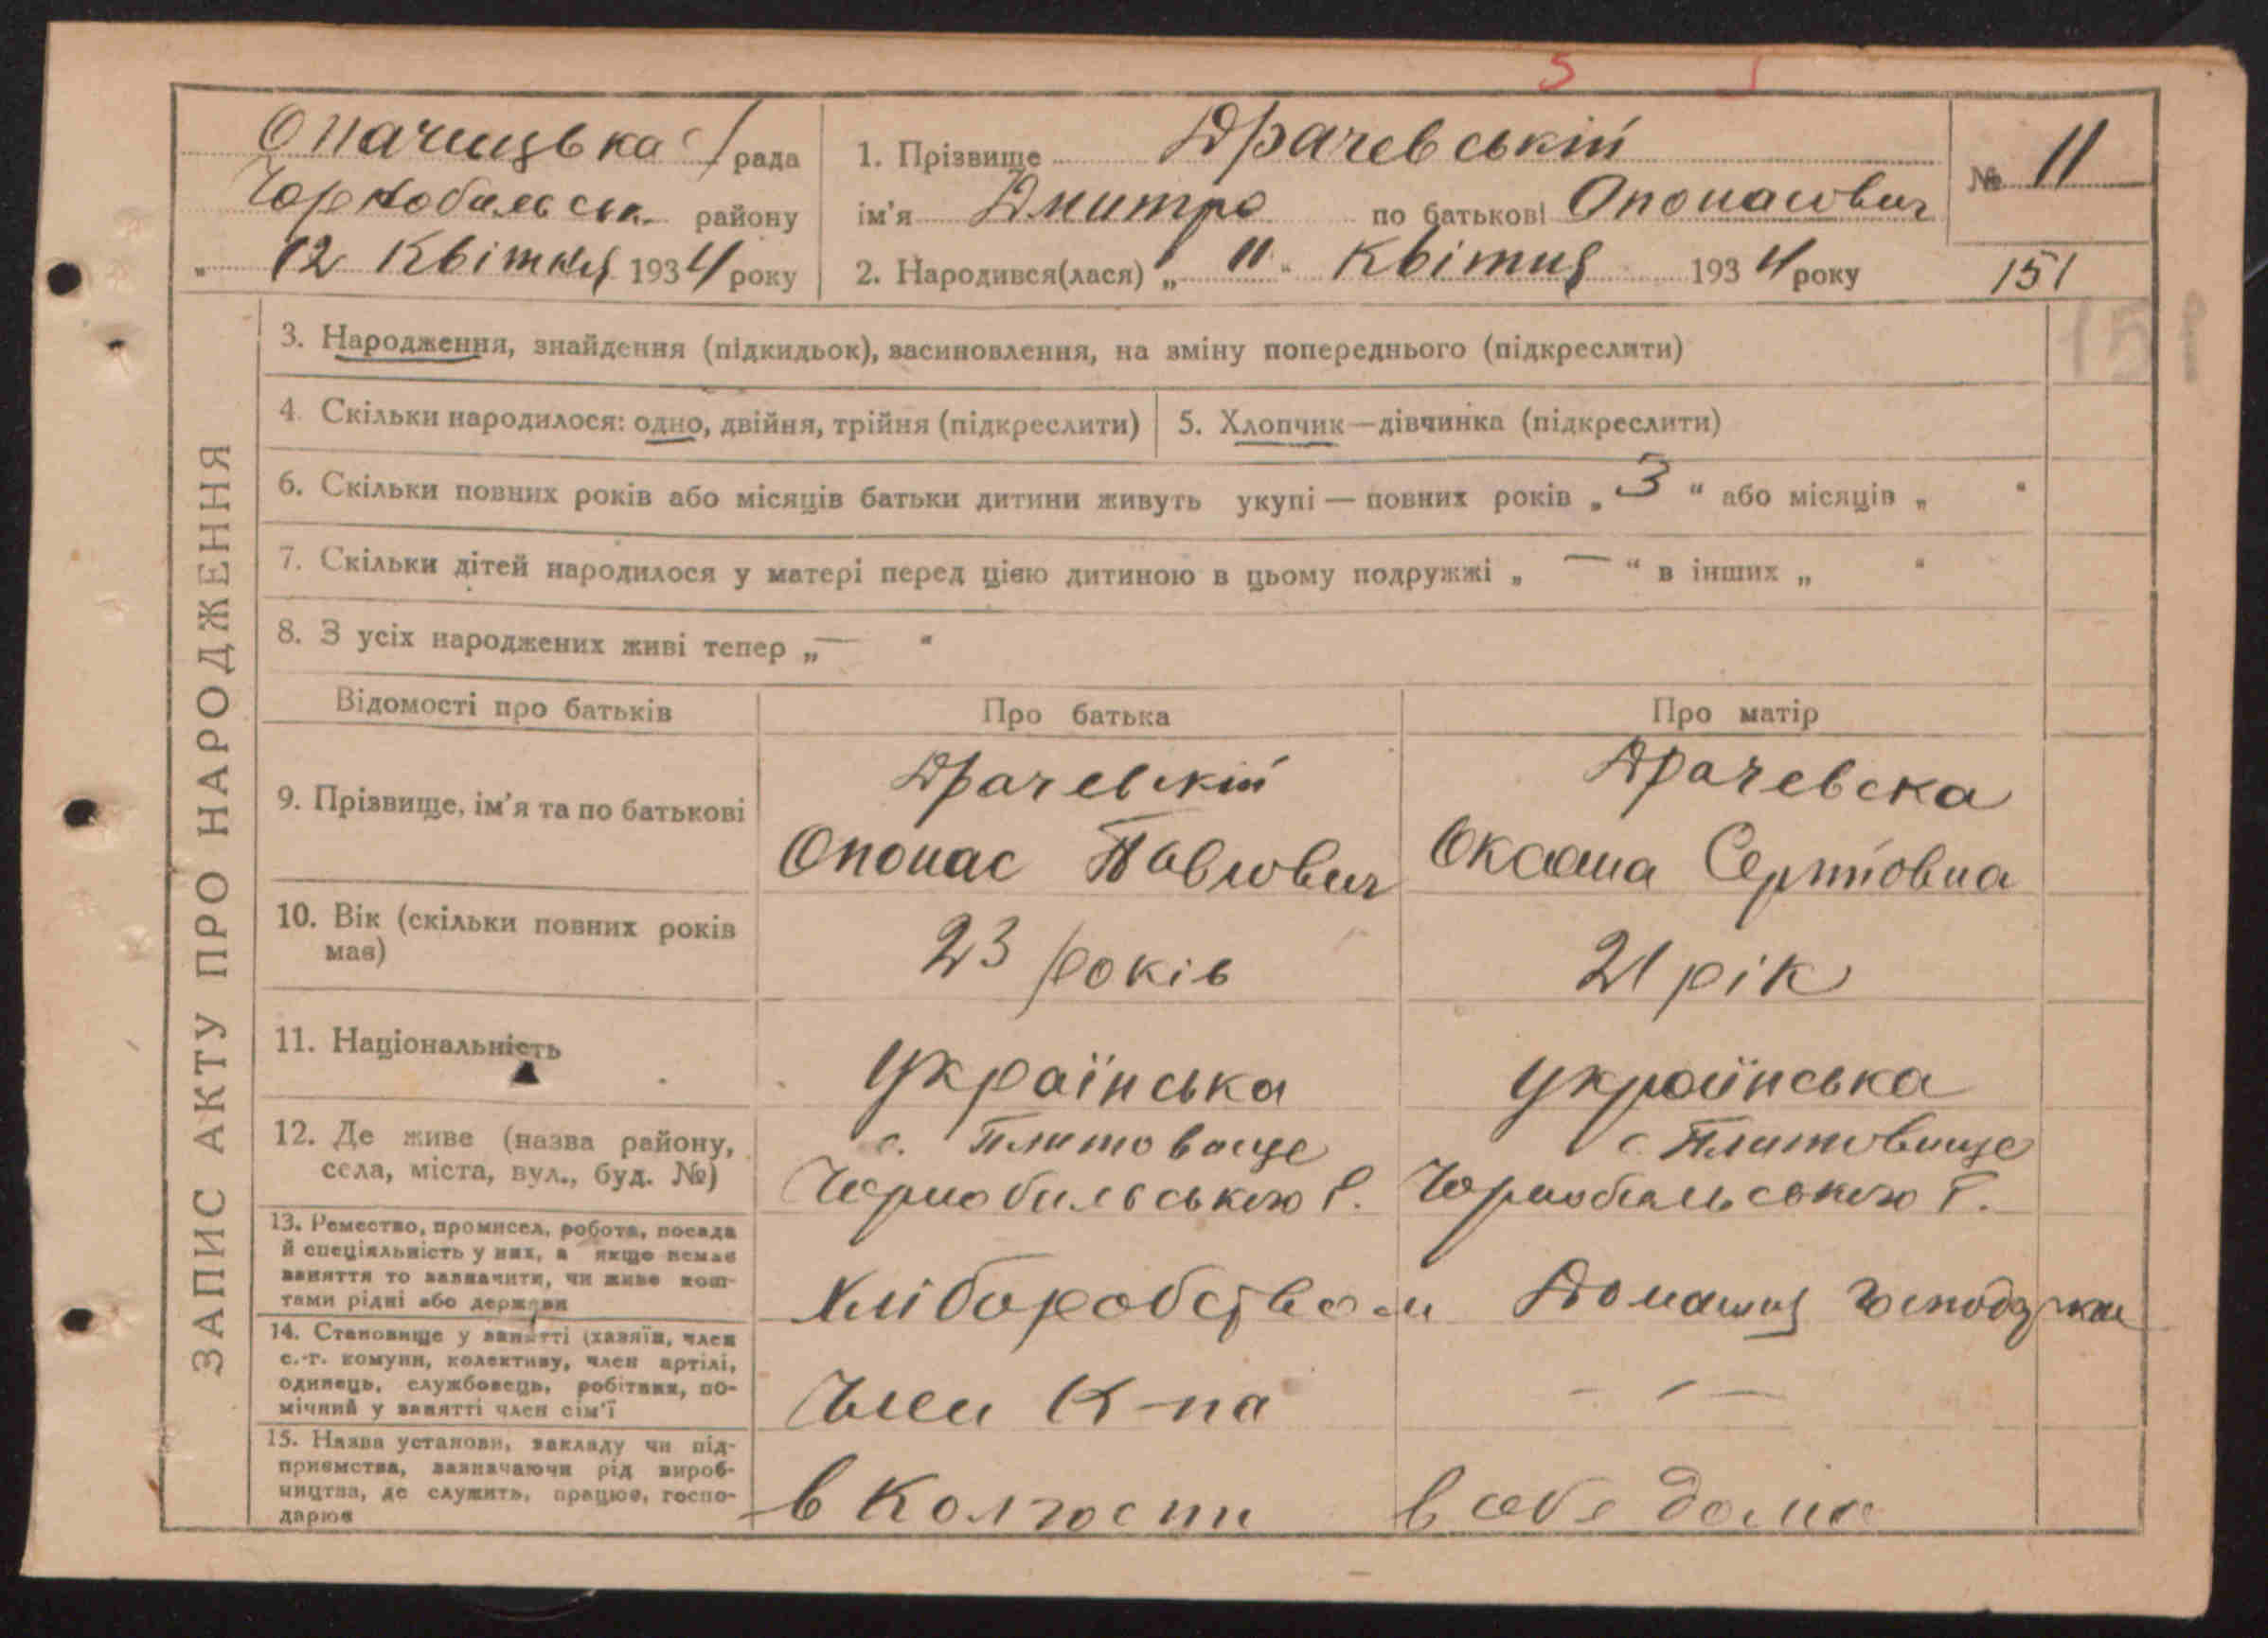 Опачицька с/рада
Чорнобильськ. району
„ 12 Квітня 1934 року
1. Прізвище Драчевській
ім'я Дмитро по батькові Опонасович
2. Народився(лася) „ 11 " Квітня 1934 року
№ 11
151
151
ЗАПИС АКТУ ПРО НАРОДЖЕННЯ
3. Народження, знайдення (підкидьок), васиновлення, на зміну попереднього (підкреслити)
4. Скільки народилося: одно, двійня, трійня (підкреслити)
5. Хлопчик—дівчинка (підкреслити)
6. Скільки повних років або місяців батьки дитини живуть укупі — повних років „ 3 " або місяців „ "
7. Скільки дітей народилося у матері перед цією дитиною в цьому подружжі „ — " в інших „ "
8. З усіх народжених живі тепер „ — "
Відомості про батьків
Про батька
Про матір
9. Прізвище, ім'я та по батькові
Драчевскій
Опонас Павлович
Драчевска
Оксана
10. Вік (скільки повних років
має)
23 років
21 рік
11. Національність
Українська
Українська
12. Де живе (назва району,
села, міста, вул., буд. №)
с. Плитовище
Чорнобильською Р.
с. Плитовище
Чорнобильською Р.
13. Ремество, промисел, робота, посада
й спеціяльність у них, а якщо немає
заняття то зазначити, чи живе кош-
тами рідні або держави
Хліборобством
Домашня господарка
14. Становище у занятті (хазяїн, член
с.-г. комуни, колективу, член артілі,
одинець, службовець, робітник, по-
мічний у занятті член сім'ї
Член К-па
— — —
15. Назва установи, закладу чи під-
приємства, зазначаючи рід вироб-
ництва, де служить, працює, госпо-
дарює
в Колгоспи
в себе дома